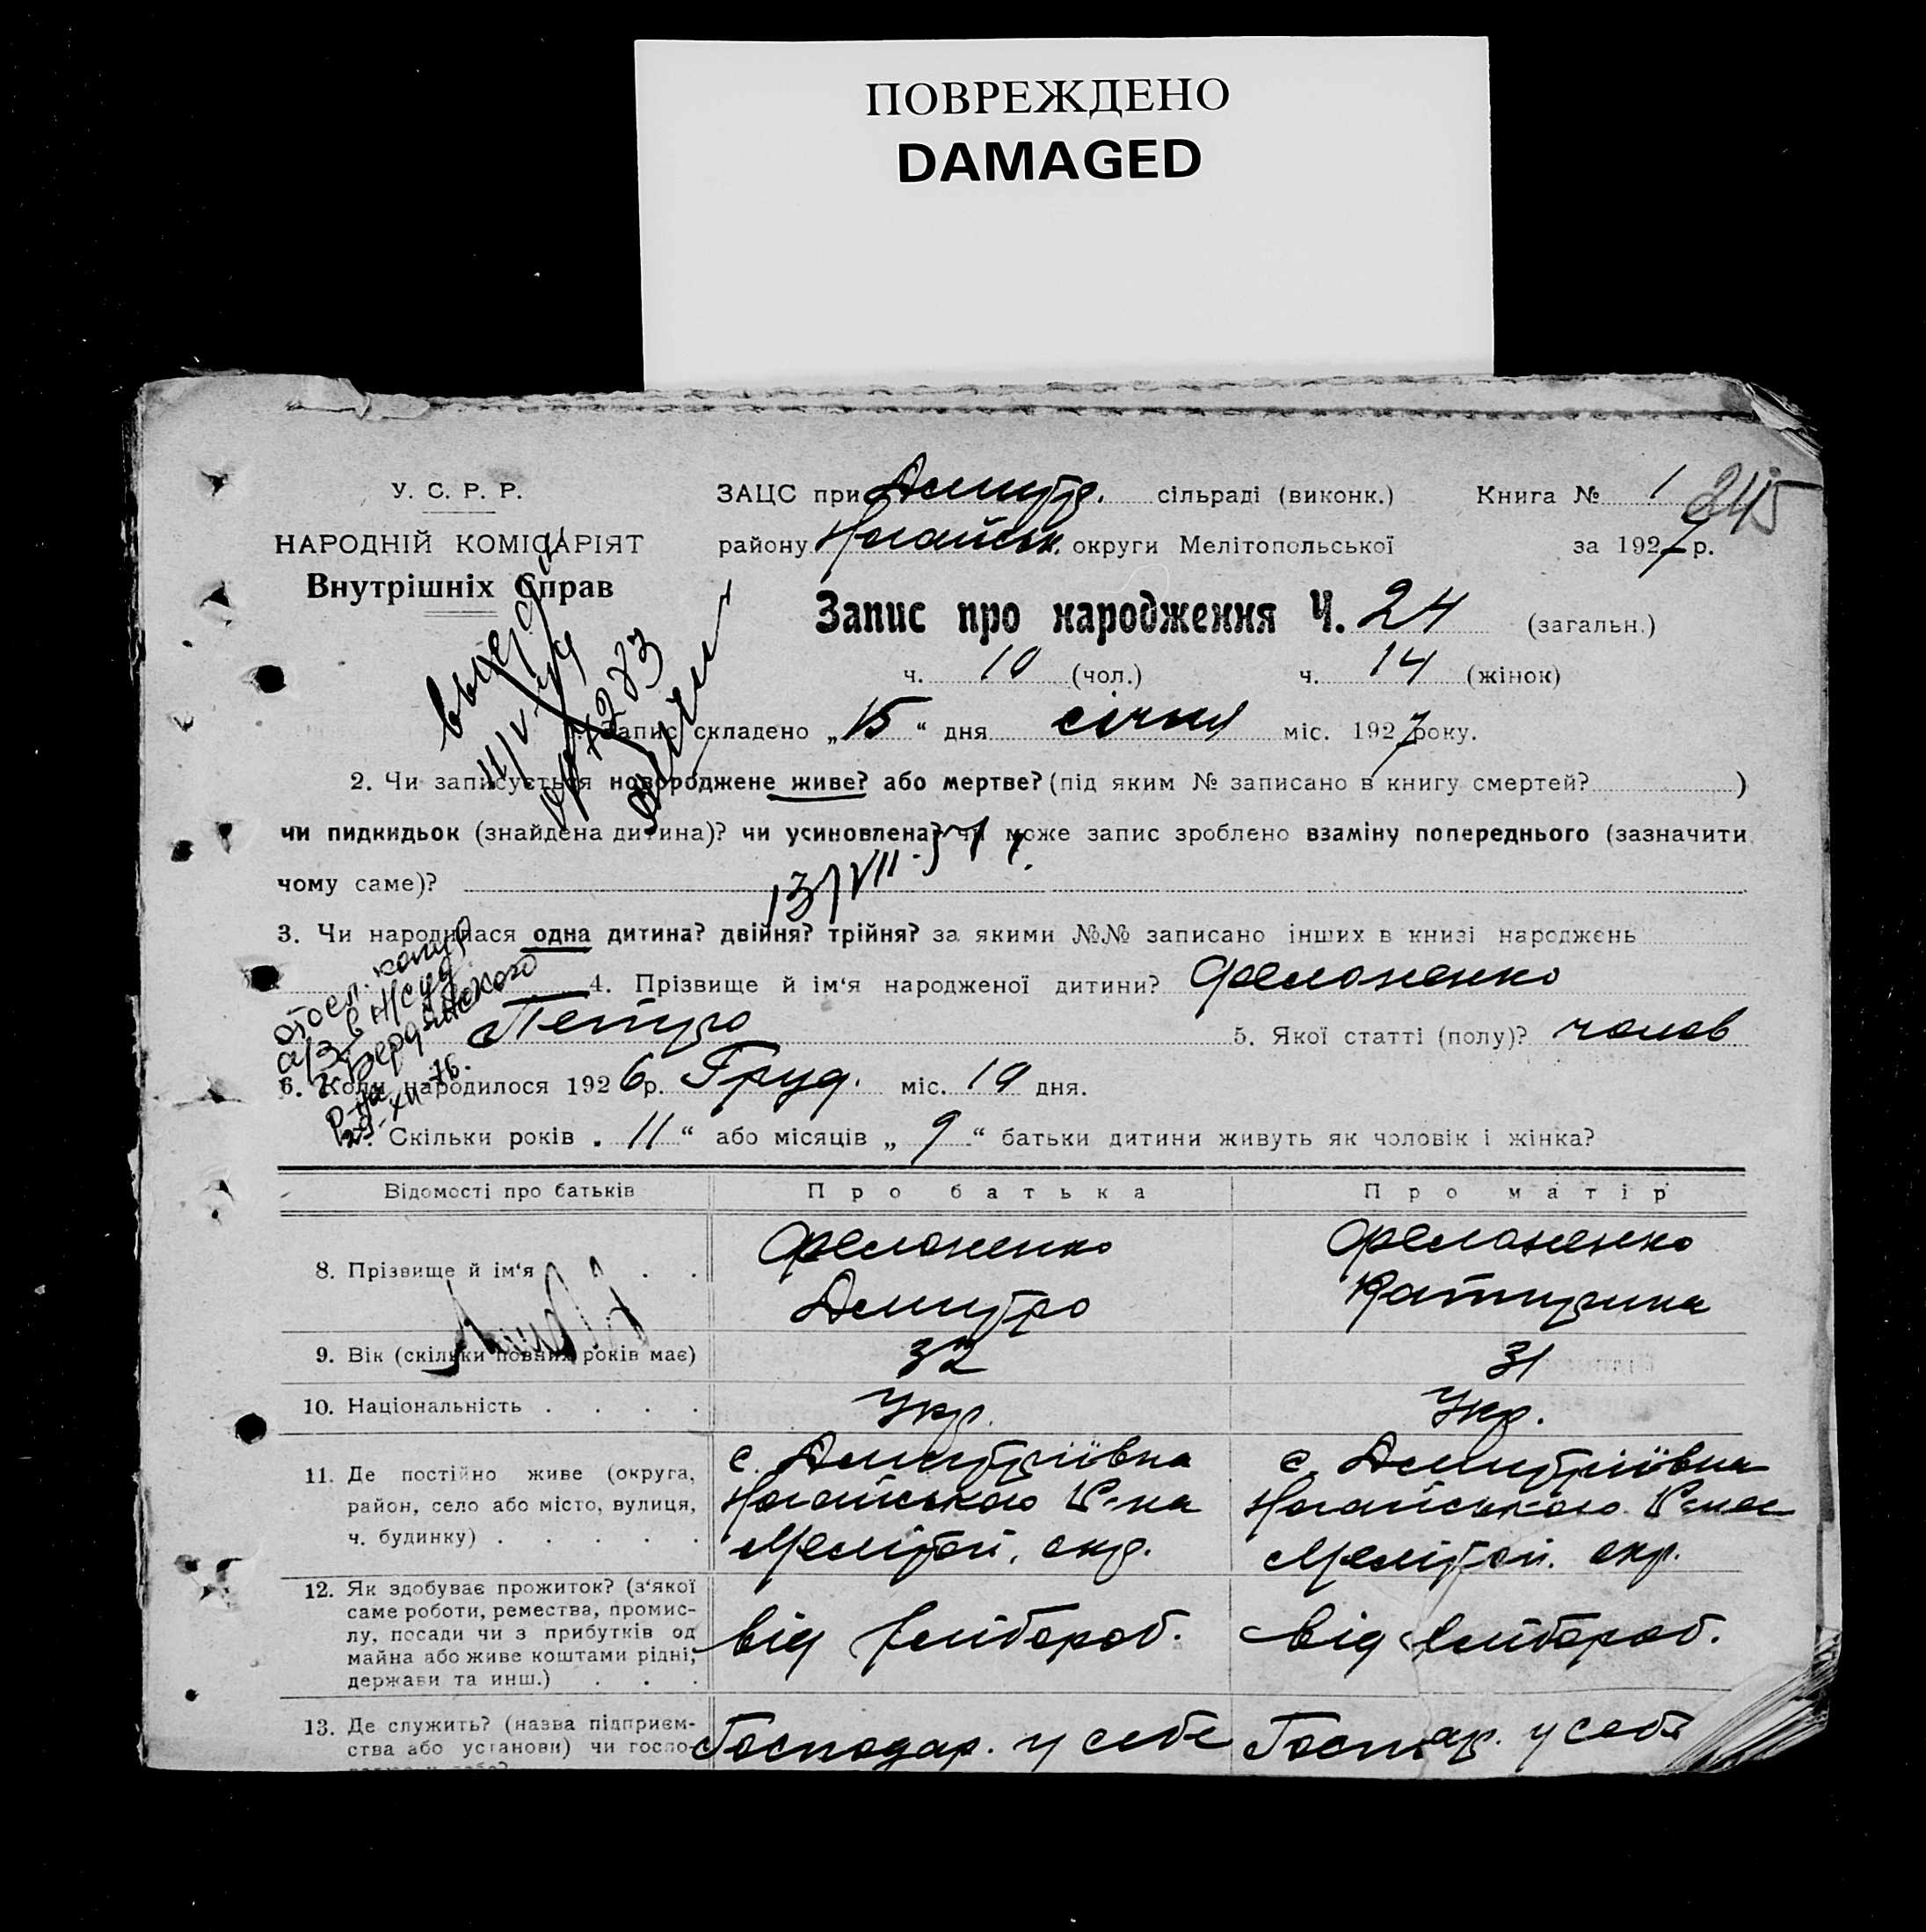 ПОВРЕЖДЕНО
DAMAGED
У. С. Р. Р.
НАРОДНІЙ КОМІСАРІЯТ
Внутрішніх Справ
ЗАЦС при Дмитр. сільраді (виконк.) Книга № 1 245
району Ногайськ. округи Мелітопольської за 1927 р.
Запис про народження Ч. 24 (загальн.)
ч. 10 (чол.) ч. 14 (жінок)
Запис складено „15“ дня січня міс. 1927 року.
2. Чи записується новороджене живе? або мертве? (під яким № записано в книгу смертей? )
чи пидкидьок (знайдена дитина)? чи усиновлена? чи може запис зроблено взаміну попереднього (зазначити
чому саме)?
13/VII
3. Чи народилася одна дитина? двійня? трійня? за якими №№ записано інших в книзі народжень
4. Прізвище й ім‘я народженої дитини? Филоненко
Петро 5. Якої статті (полу)? чолов
6. Коли народилося 1926 р. Груд. міс. 19 дня.
Скільки років „11“ або місяців „9“ батьки дитини живуть як чоловік і жінка?
отосл. копия
а/з в н/суд
г. Бердянского
р-на
29-XII 76.
Відомості про батьків Про батька Про матір
8. Прізвище й ім‘я . . . Филоненко Филоненко
Дмитро Катирина
9. Вік (скільки повних років має) 32 31
10. Національність . . . . Укр. Укр.
11. Де постійно живе (округа, с. Дмитріївка с. Дмитріївка
район, село або місто, вулиця, Ногайського Р-на Ногайського Р-на
ч. будинку) . . . . . Мелітоп. окр. Мелітоп. окр.
12. Як здобуває прожиток? (з‘якої
саме роботи, ремества, промис-
лу, посади чи з прибутків од від хлібороб. від хлібороб.
майна або живе коштами рідні,
держави та инш.) . . .
13. Де служить? (назва підприєм-
ства або установи) чи госпо- Господар. у себе Господар. у себе